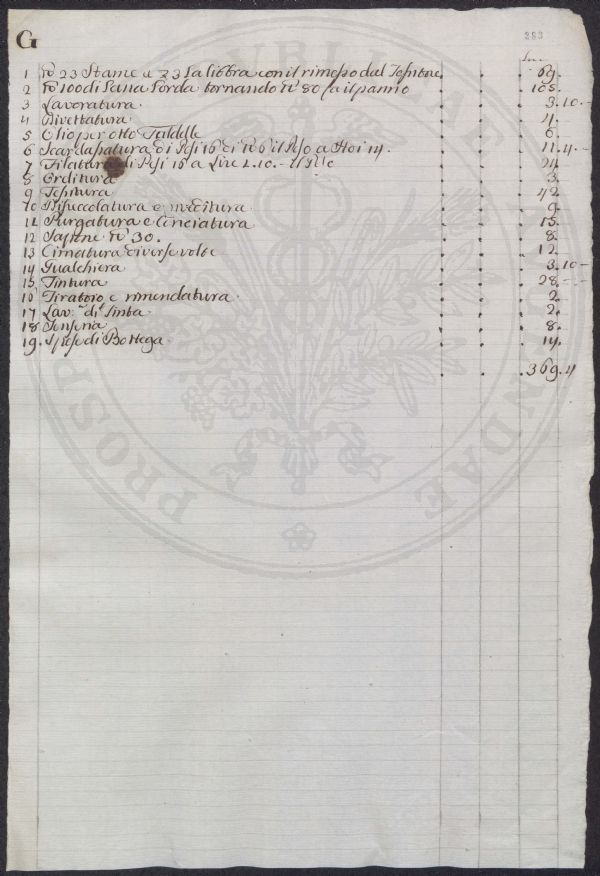 G
393
Lire
1 lb 23 Stame a £ 3 la libbra con il rimesso dal Tessitore 69.
2 lb 100 di Lana Lorda tornando lb 80 fa il panno 105.
3 Lavoratura 3.10.-
4 Divettatura 4.
5 Olio per otto Faldelle 6.
6 Scardassatura di Pesi 16 di lb 6 il Peso a soi 14. 11.4.-
7 Filatura di Pesi 16 a Lire 1.10.- il Peso 24
8 Orditura 3.
9 Tessitura 42
10 Disuccolatura e 9.
11 Purgatura e Conciatura 15.
12 Sapone lb 30. 8.
13 Cimatura diverse volte 12.
14 Gualchiera 3.10-
15 Tintura 28.-.-
16 Tiratoio e rimendatura 2.
17 Lav.ª di Tinta 2.
18 Senseria 8.
19. Spese di Bottega 14.
369.4
PUBLICAE PROSPERITATI